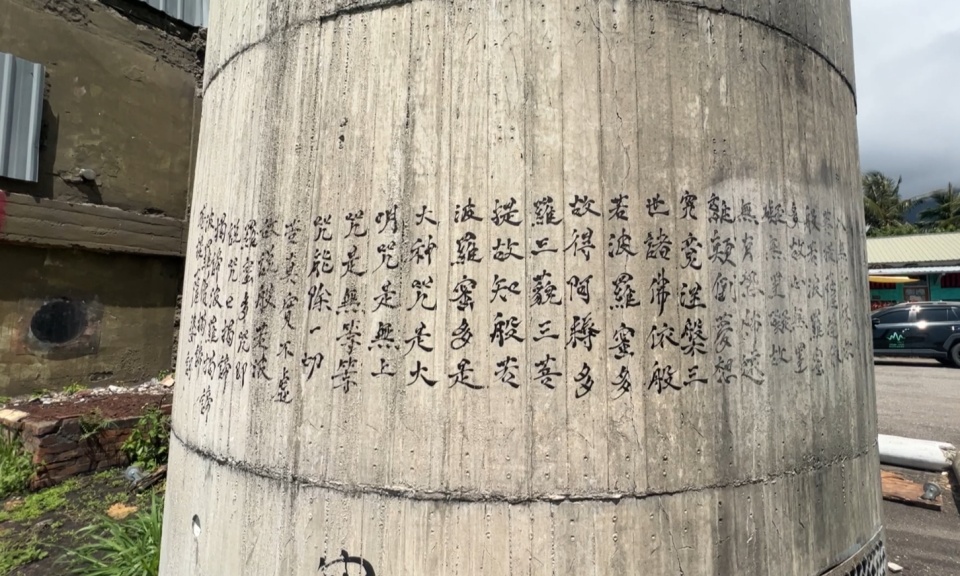 般若波羅蜜
多故心無罣
礙無罣礙故
無有恐怖遠
離顛倒夢想
究竟涅槃三
世諸佛依般
若波羅蜜多
故得阿耨多
羅三藐三菩
提故知般若
波羅蜜多是
大神咒是大
明咒是無上
咒是無等等
咒能除一切
苦真實不虛
故說般若波
羅蜜多咒即
說咒曰揭諦
揭諦波羅揭諦
波羅僧揭諦